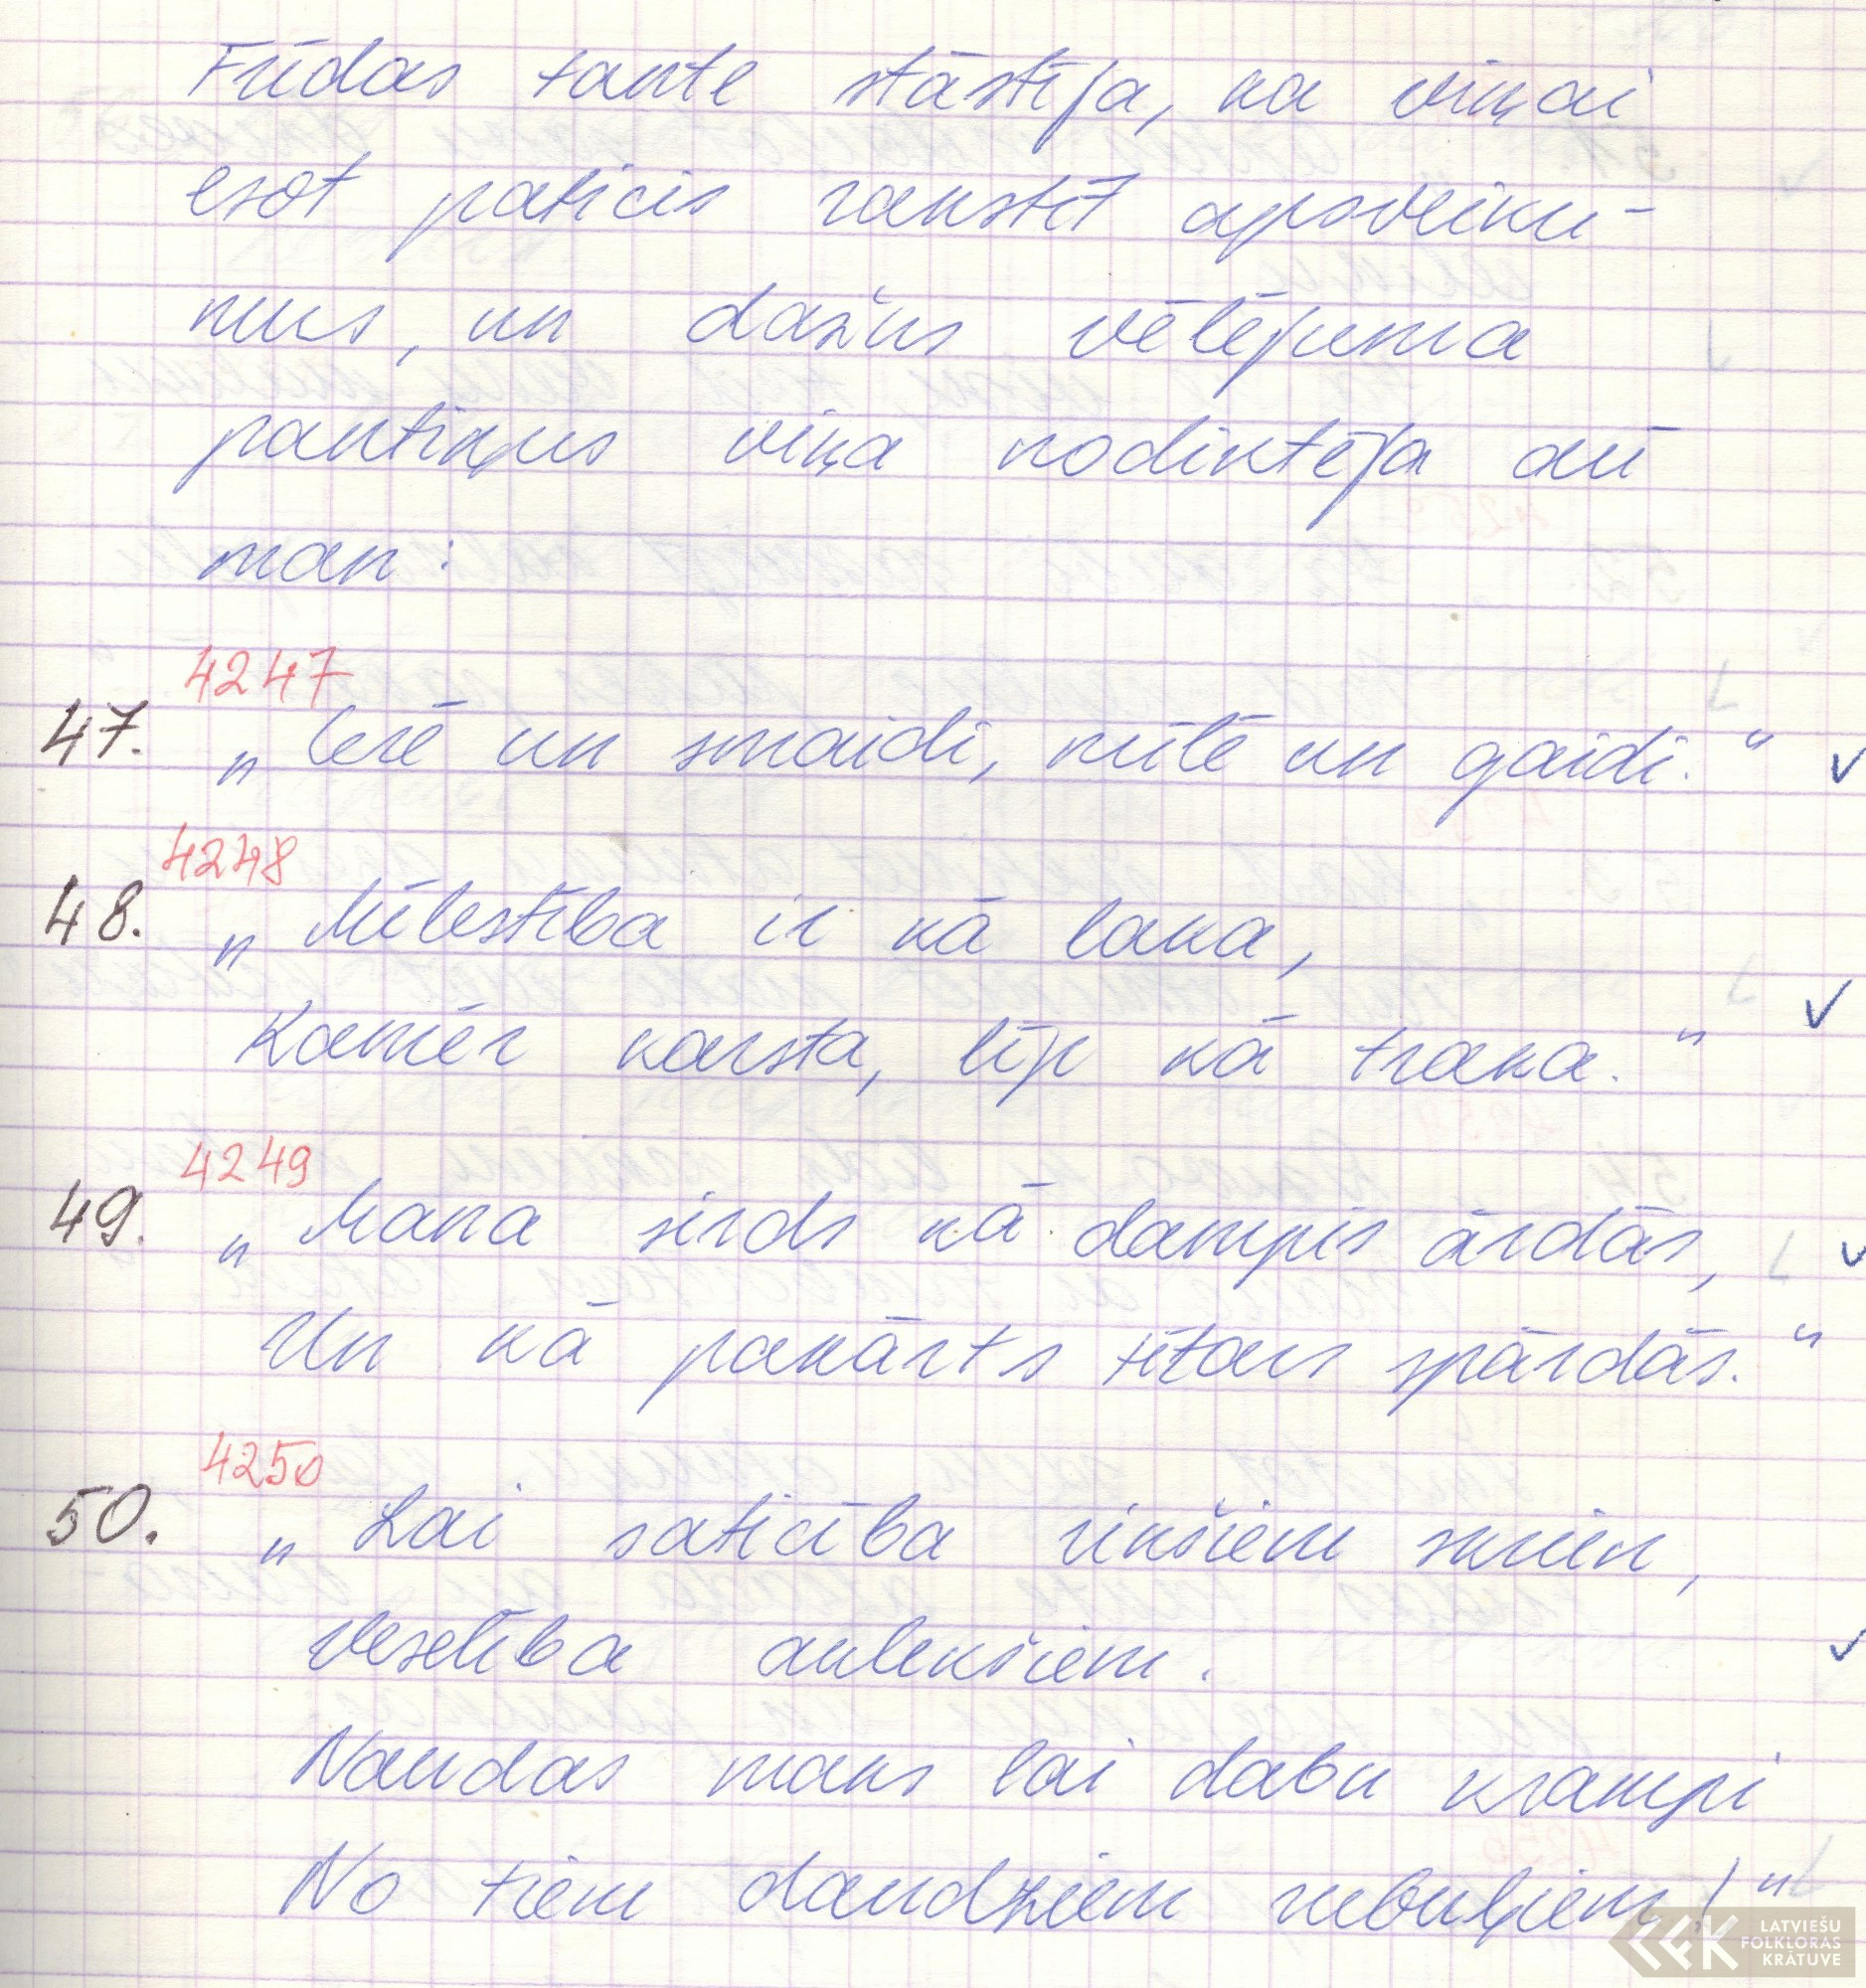 Frīdas tante stāstīja, ka viņai
esot paticis rakstīt apsveiku-
mus, un dažus vēlējuma
pantiņus viņa nodiktēja arī
man:
4247
47. „Cerē un smaidi, mīlē un gaidi."
4248
48. „Mīlestība ir kā laka,
Kamēr karsta, līp kā traka."
4249
49. „Mana sirds kā dampis ārdās,
Un kā pakārts tītars spārdās."
4250
50. „Lai saticība rikšiem skrien,
Veselība aulekšiem.
Naudas maks lai dabu krampi
No tiem daudziem rubuļiem!"
LATVIEŠU
FOLKLORAS
KRĀTUVE